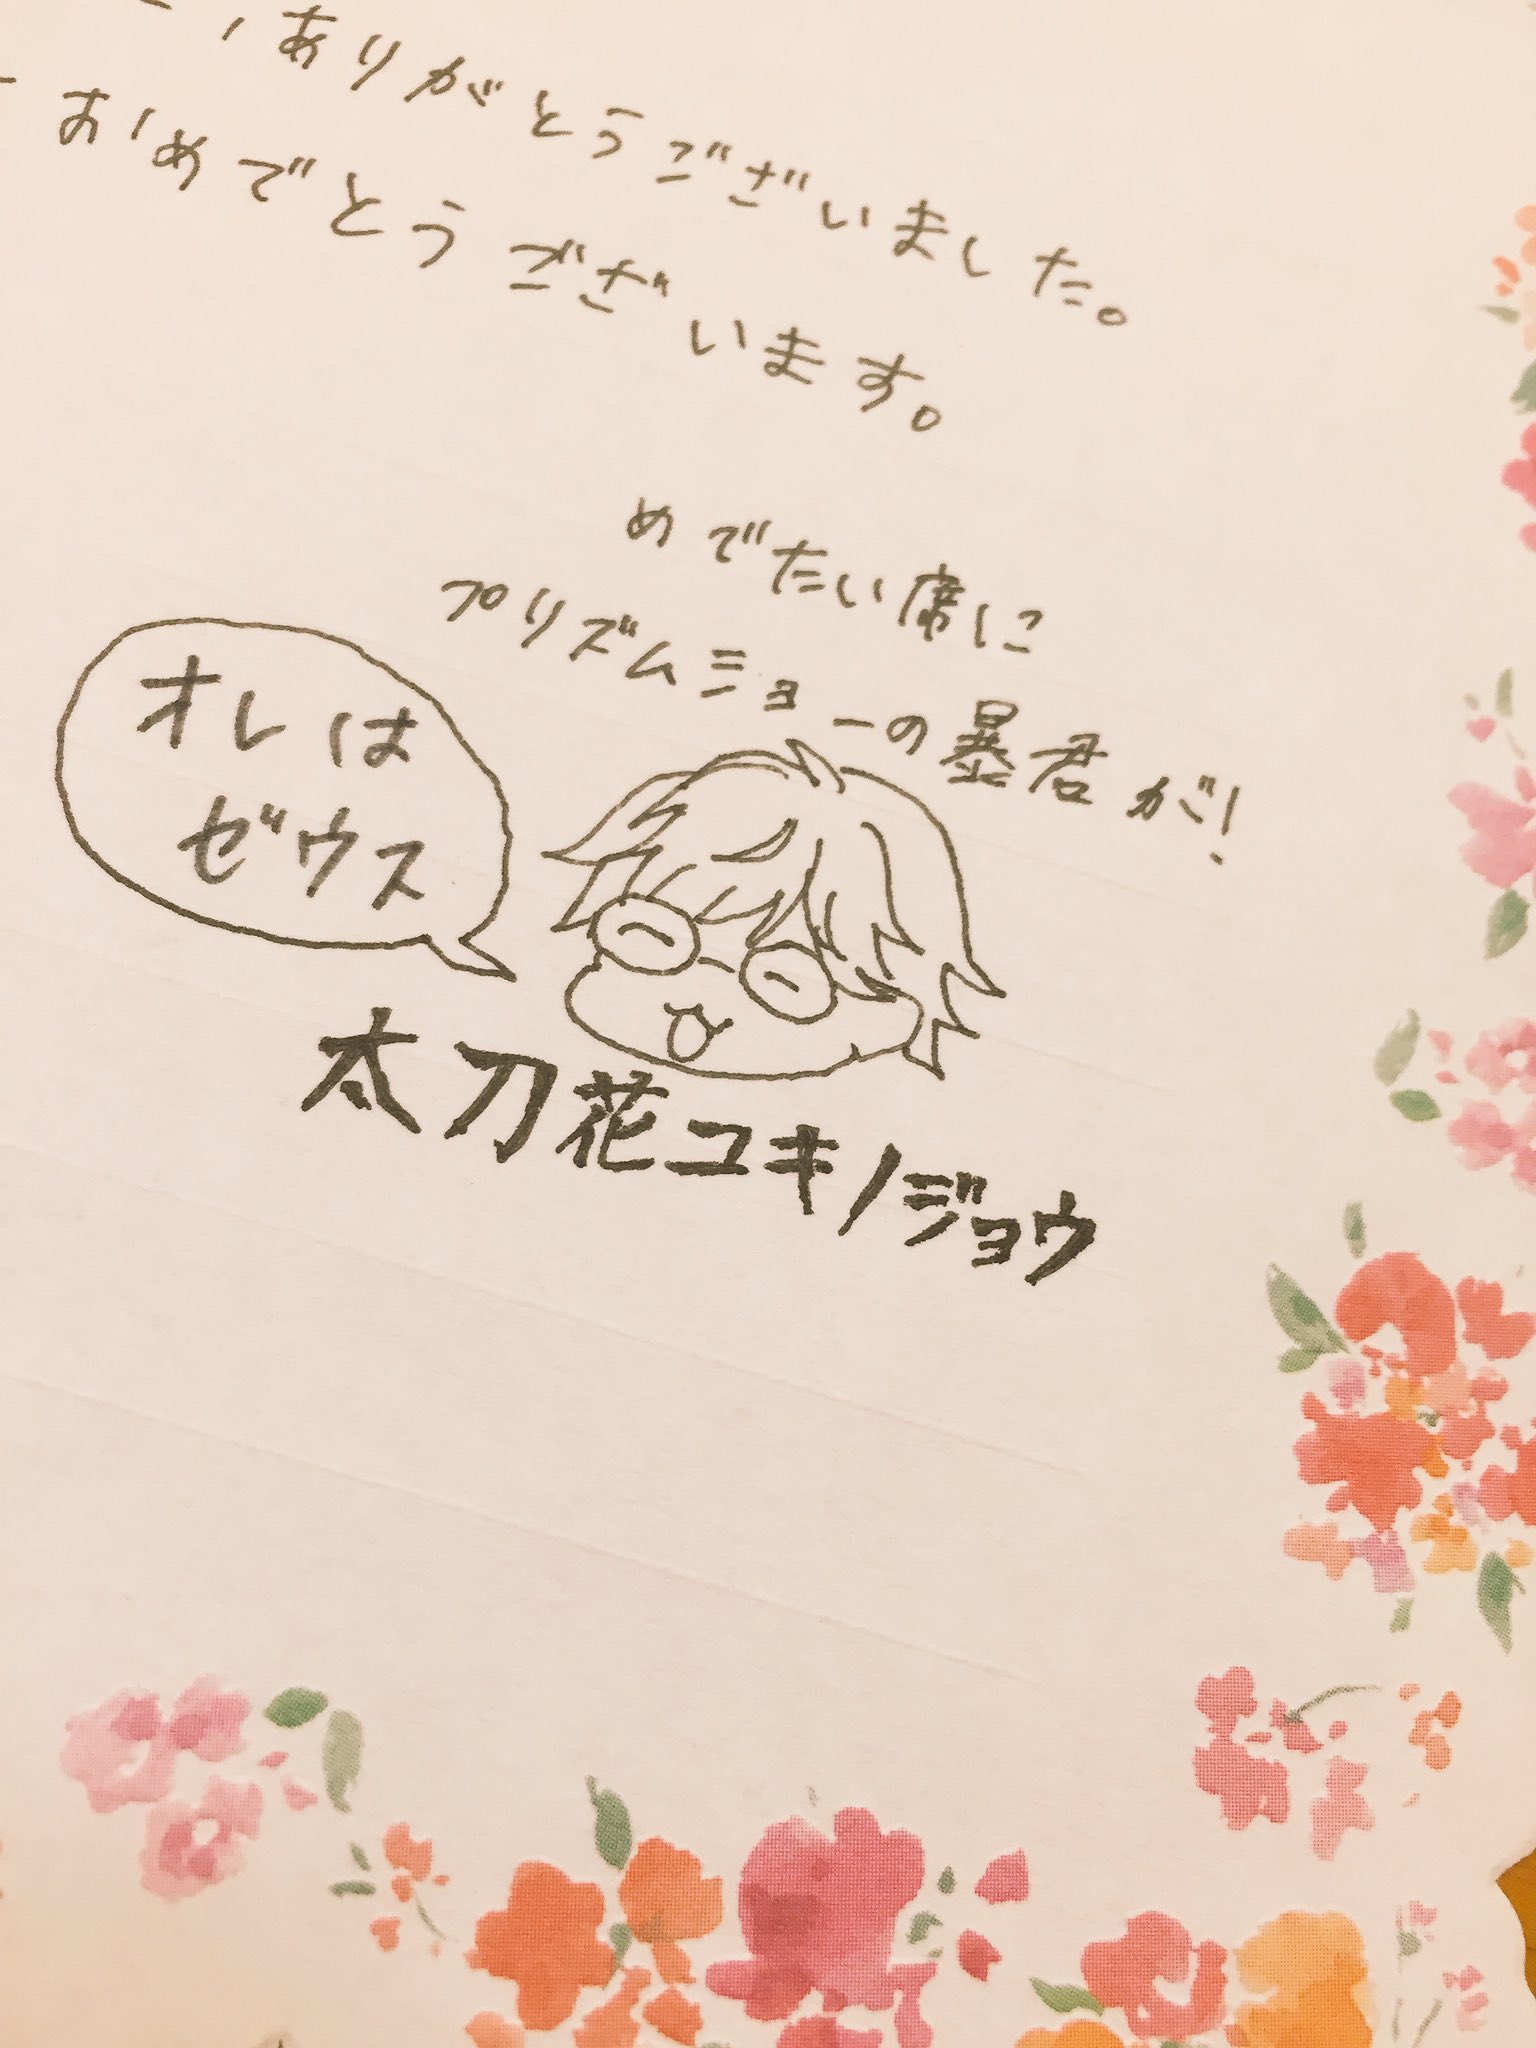 ありがとうございました。
おめでとうございます。
めでたい席に
プリズムショーの暴君が!
オレは
ゼウス
太刀花ユキノジョウ